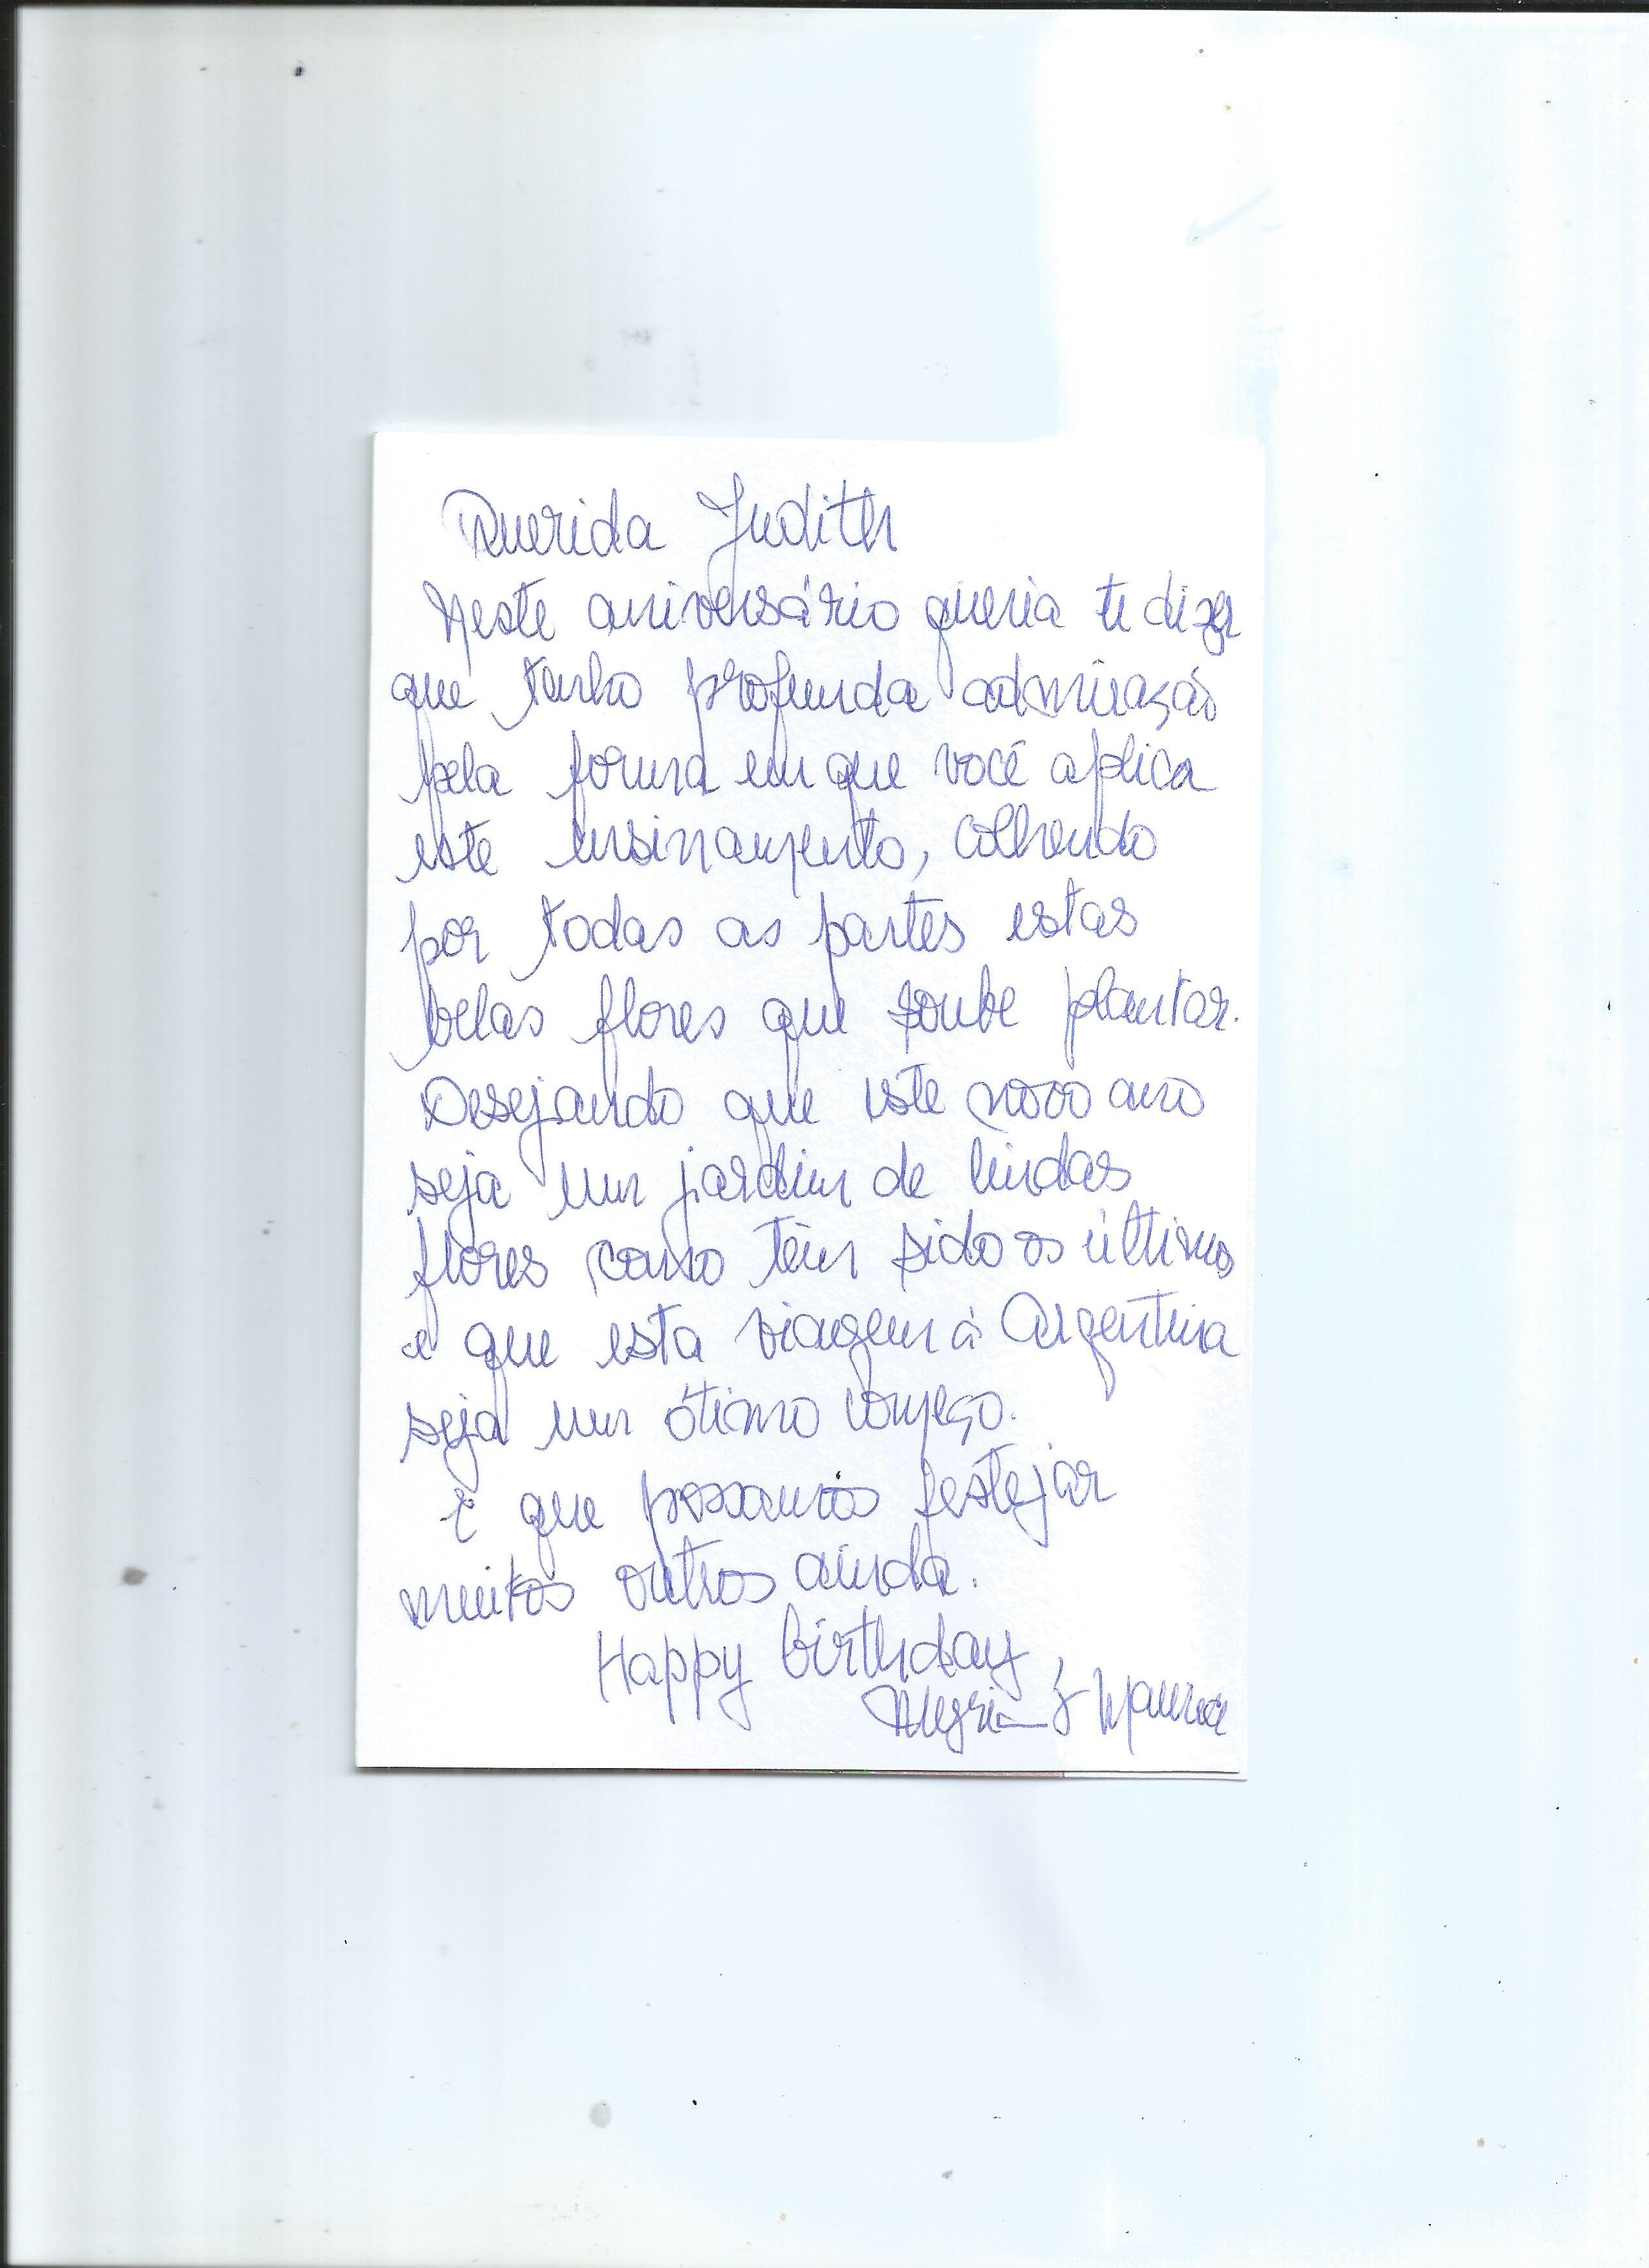 Querida Judith
Neste aniversário queria te dizer
que tenho profunda admiração
pela forma em que você aplica
este ensinamento, colhendo
por todas as partes estas
belas flores que soube plantar.
Desejando que este novo ano
seja um jardim de lindas
flores como têm sido os últimos
e que esta viagem à Argentina
seja um ótimo começo.
E que possamos festejar
muitos outros ainda.
Happy birthday,
Alegria & Maurice